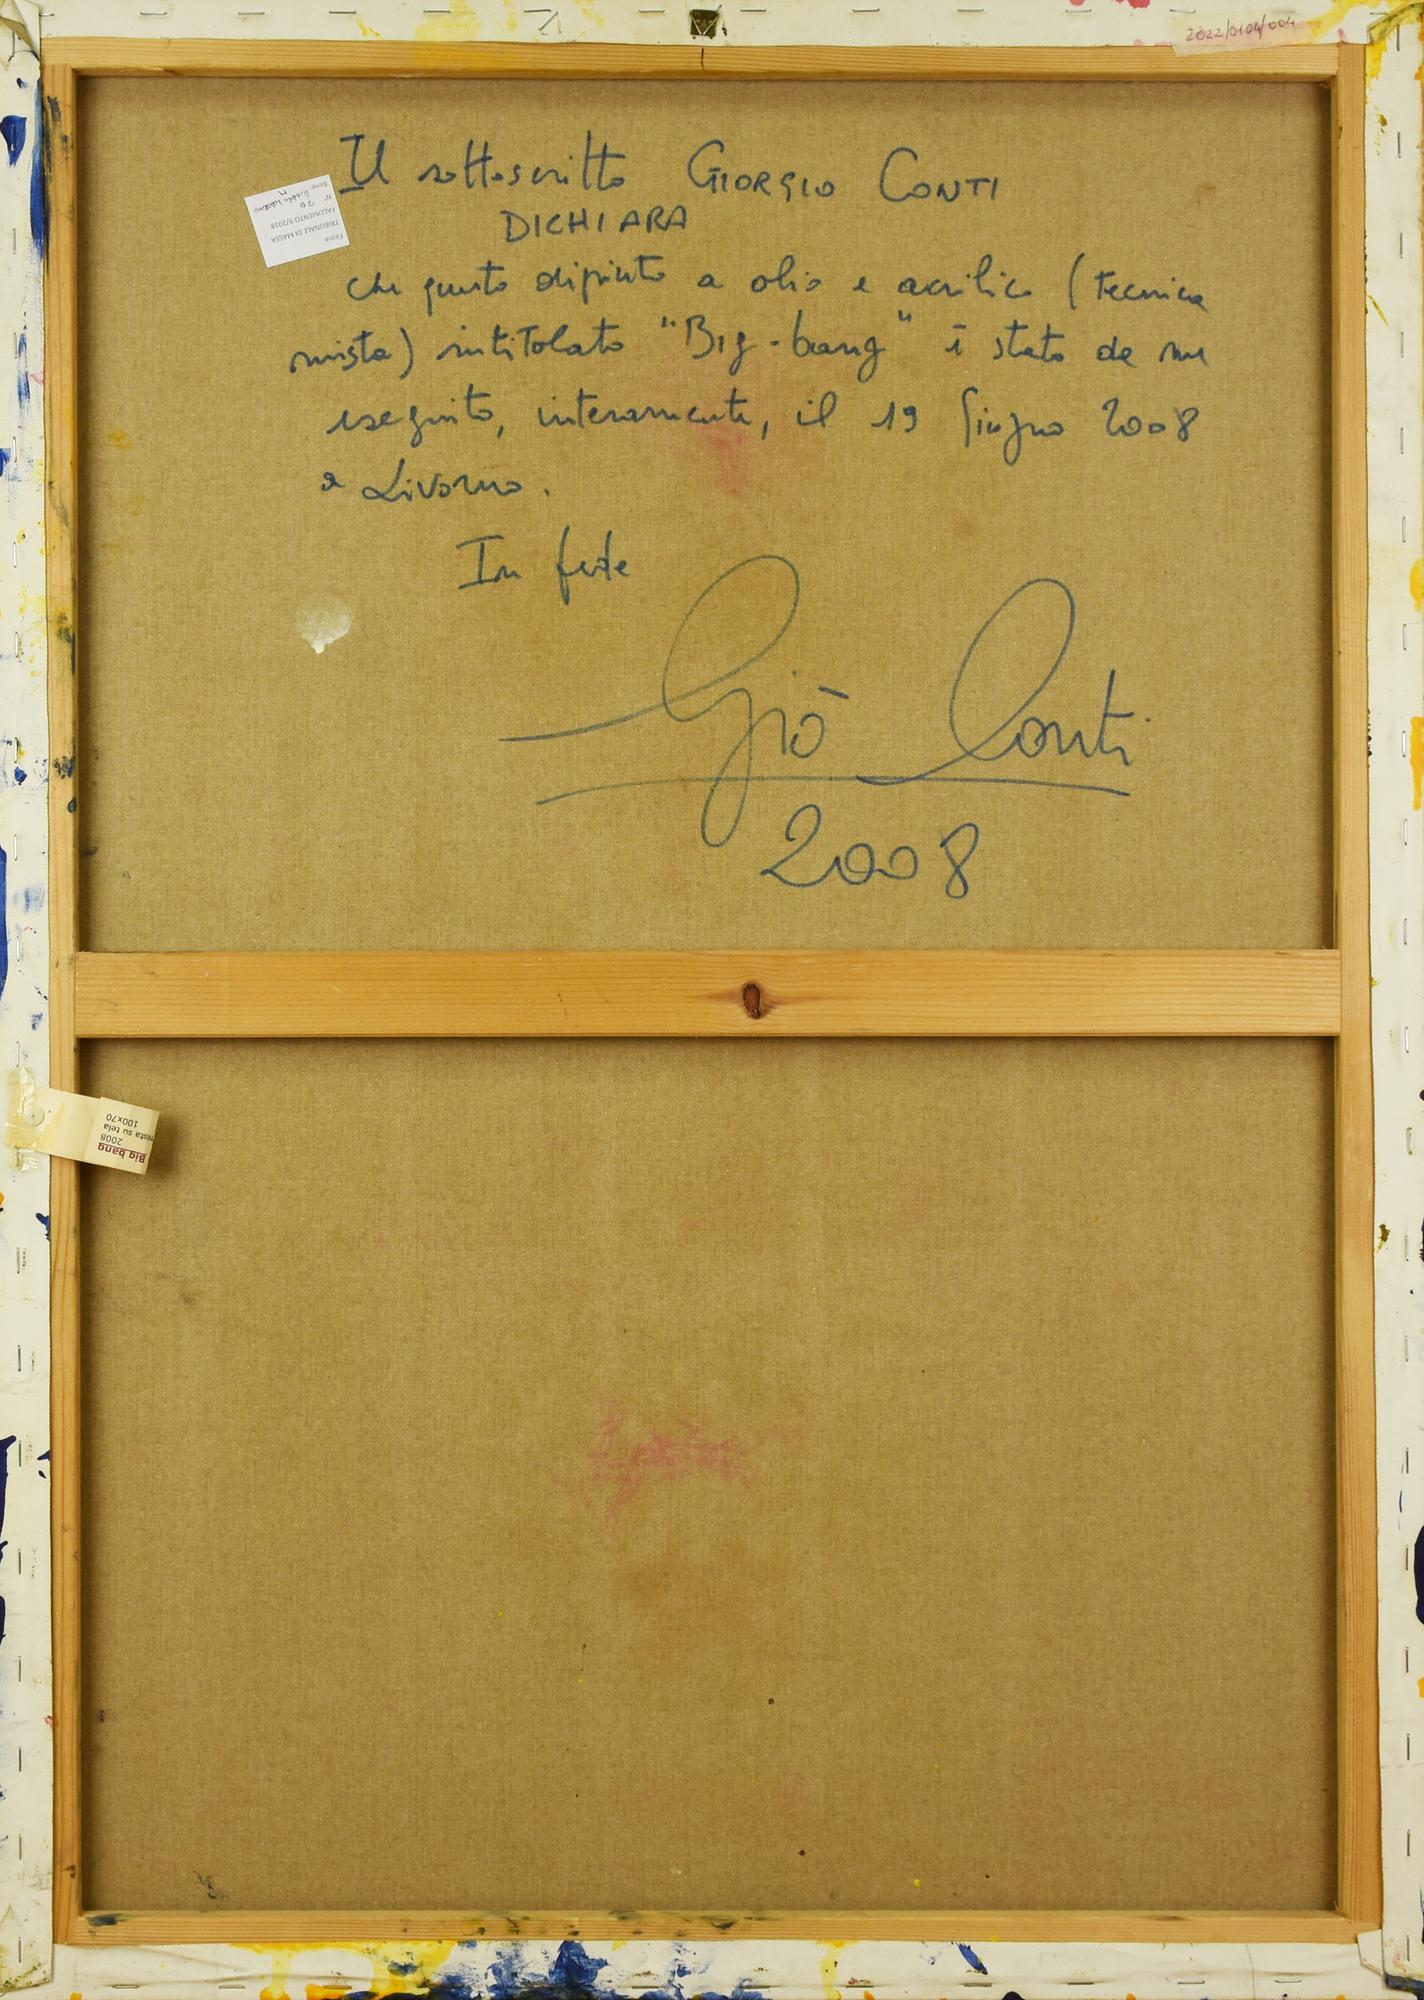 2022/0104/004
Il sottoscritto GIORGIO CONTI
DICHIARA
che questo dipinto a olio e acrilico (tecnica
mista) intitolato "Big-bang" è stato da me
eseguito, interamente, il 19 Giugno 2008
a Livorno.
In fede
Giò Conti
2008
Firma
TRIBUNALE DI MASSA
FALLIMENTO 9/2018
N°
Bene:
Big bang
2008
mista su tela
100x70